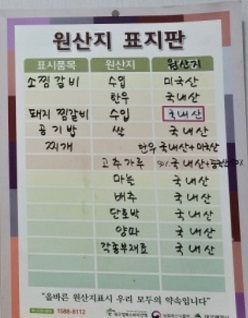 원산지 표지판
표시품목 원산지 원산지
소찜갈비 수입 미국산
한우 국내산
돼지 찜갈비 수입 국내산
공기밥 쌀 국내산
찌개 한우 국내산+미국산
고추가루 국내산+중국산
마늘 국내산
배추 국내산
단호박 국내산
양파 국내산
각종부재료 국내산
"올바른 원산지표시 우리 모두의 약속입니다"
1588-8112